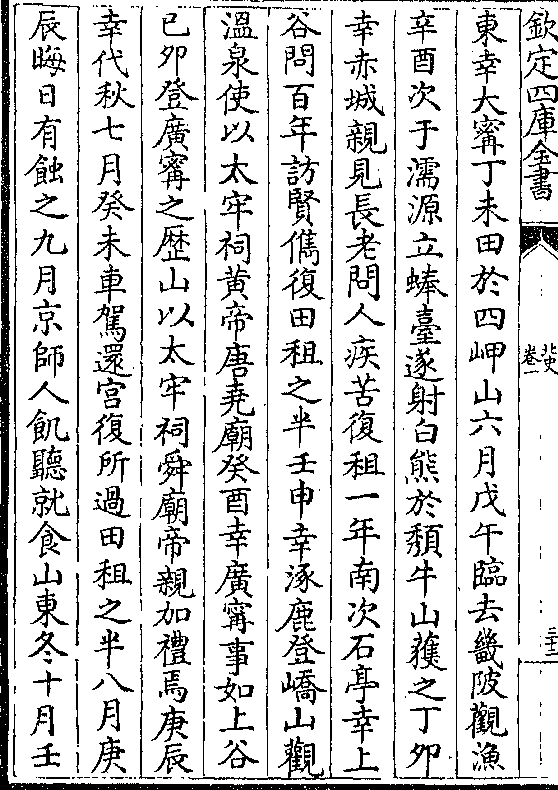 欽定四庫全書
北史
卷一
三十三
東幸大寗丁未田於四岬山六月戊午臨去畿陂觀漁
辛酉次于濡源立蜯臺遂射白熊於頹牛山獲之丁卯
幸赤城親見長老問人疾苦復租一年南次石亭幸上
谷問百年訪賢儁復田租之半壬申幸涿鹿登嶠山觀
溫泉使以太牢祠黄帝唐堯廟癸酉幸廣寗事如上谷
已卯登廣寗之歴山以太牢祠舜廟帝親加禮焉庚辰
幸代秋七月癸未車駕還宫復所過田租之半八月庚
辰晦日有蝕之九月京師人飢聽就食山東冬十月壬